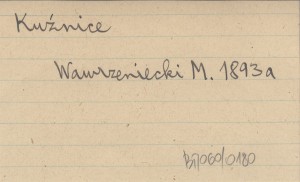 Kuźnice
Wawrzeniecki M. 1893a
Bj/060/0180